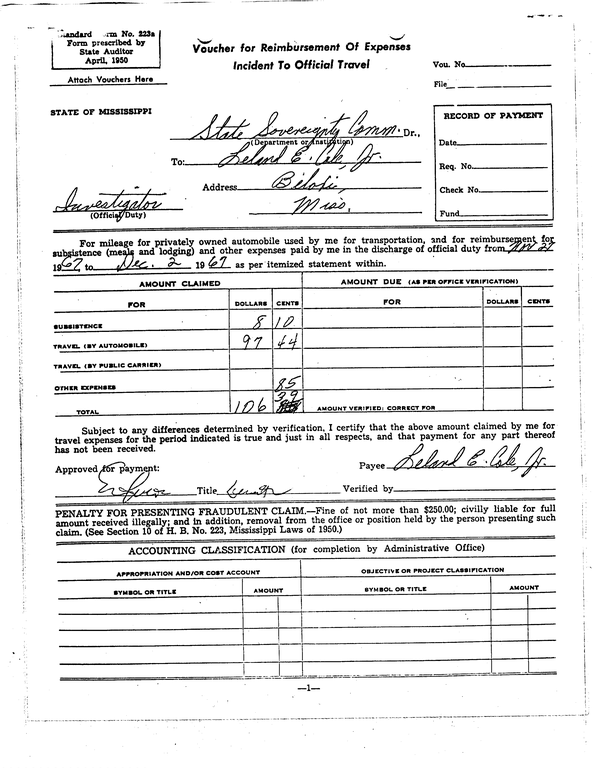 Standard Form No. 223a
Form prescribed by
State Auditor
April, 1950
Attach Vouchers Here
Voucher for Reimbursement Of Expenses
Incident To Official Travel
Vou. No.
File
STATE OF MISSISSIPPI
RECORD OF PAYMENT
Date
Req. No.
Check No.
Fund
State Sovereignty Comm. Dr.,
(Department or Institution)
To: Leland E. Cole, Jr.
Address Biloxi,
Miss.
Investigator
(Official Duty)
For mileage for privately owned automobile used by me for transportation, and for reimbursement for
subsistence (meals and lodging) and other expenses paid by me in the discharge of official duty from Nov 27
1967, to Dec. 2 1967 as per itemized statement within.
AMOUNT CLAIMED
AMOUNT DUE (AS PER OFFICE VERIFICATION)
FOR DOLLARS CENTS FOR DOLLARS CENTS
SUBSISTENCE 8 10
TRAVEL (BY AUTOMOBILE) 97 44
TRAVEL (BY PUBLIC CARRIER)
OTHER EXPENSES 85
TOTAL 106 39 AMOUNT VERIFIED: CORRECT FOR
Subject to any differences determined by verification, I certify that the above amount claimed by me for
travel expenses for the period indicated is true and just in all respects, and that payment for any part thereof
has not been received.
Payee Leland E. Cole, Jr.
Approved for payment:
Title Verified by
PENALTY FOR PRESENTING FRAUDULENT CLAIM.—Fine of not more than $250.00; civilly liable for full
amount received illegally; and in addition, removal from the office or position held by the person presenting such
claim. (See Section 10 of H. B. No. 223, Mississippi Laws of 1950.)
ACCOUNTING CLASSIFICATION (for completion by Administrative Office)
APPROPRIATION AND/OR COST ACCOUNT OBJECTIVE OR PROJECT CLASSIFICATION
SYMBOL OR TITLE AMOUNT SYMBOL OR TITLE AMOUNT
—1—